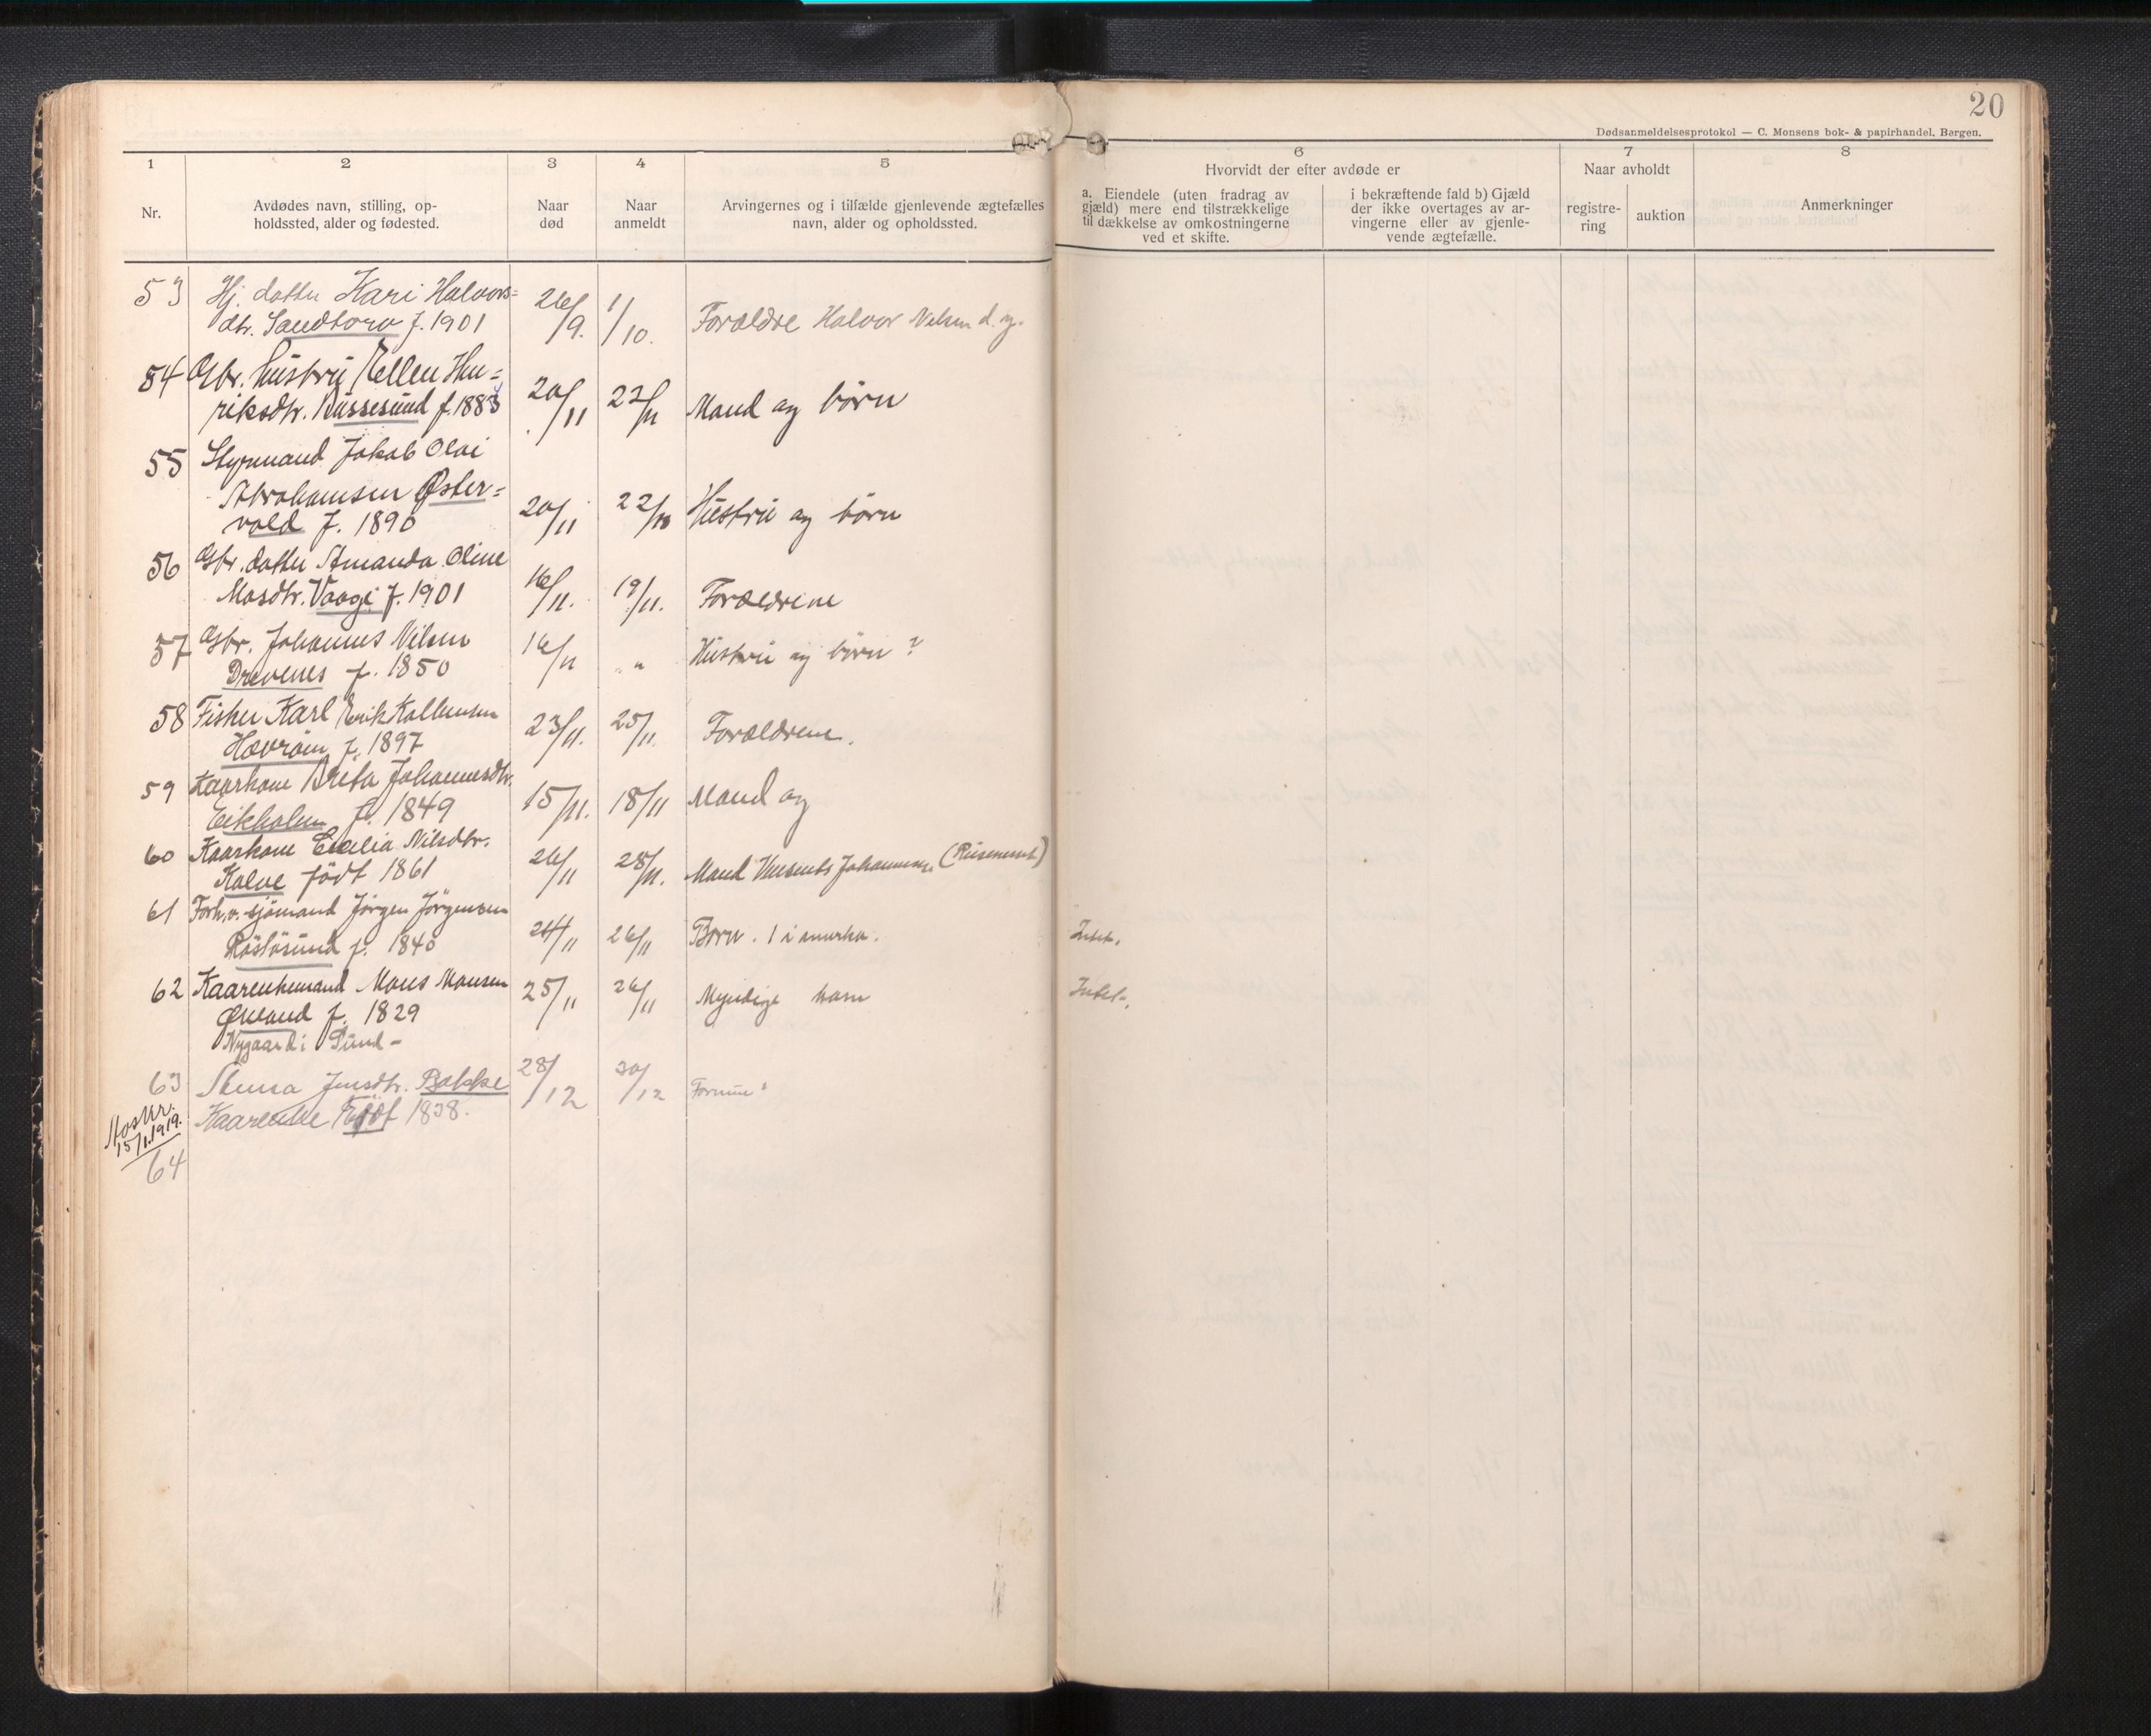 20
Dødsanmeldelsesprotokol — C. Monsens bok- & papirhandel, Bergen.
1 2 3 4 5 6 7 8
Nr.
Avdødes navn, stilling, op-
holdssted, alder og fødested.
Naar
død
Naar
anmeldt
Arvingernes og i tilfælde gjenlevende ægtefælles
navn, alder og opholdssted.
Hvorvidt der efter avdøde er
a. Eiendele (uten fradrag av
gjæld) mere end tilstrækkelige
til dækkelse av omkostningerne
ved et skifte.
i bekræftende fald b) Gjæld
der ikke overtages av ar-
vingerne eller av gjenle-
vende ægtefælle.
Naar avholdt
registre-
ring
auktion
Anmerkninger
53 Hj. datter Kari Halvors=
dtr. f. 1901 26/9. 1/10. Forældre Halvor Nilsen d. y.
54 Gbr. hustru Ellen Hen=
riksdtr. f. 1883 20/11 22/11 Mand og børn
55 Styrmand Jakob Olai
Abrahamsen Øster=
vold f. 1890 20/11 Hustru og børn
56 Gbr. datter Amanda Oline
Maasdtr. Vaage f. 1901 16/11. 19/11. Forældrene
57 Gbr. Johannes Nilsen
Drevenes f. 1850 16/11 " " Hustru og børn ?
58 Fisker Karl Erik
f. 1897 23/11. 25/11. Forældrene.
59 Kaarkone Brita Johannesdtr.
Eikholm f. 1849 15/11. 18/11 Mand og
60 Kaarkone Nilsdtr.
Kalve født 1861 26/11 28/11. Mand Johannessen
61 Forh.v. sjömand Jörgen Jörgensen
f. 1840 24/11 26/11 Børn. 1 i amerka. Intet.
62 Kaarenkemand Mons Monsen
f. 1829 25/11 26/11 Myndige barn Intet.
Nygaard i Sund -
63 Jensdtr. Bakke 28/12 30/12
Kaarenke 1838.
15/1.1919.
64